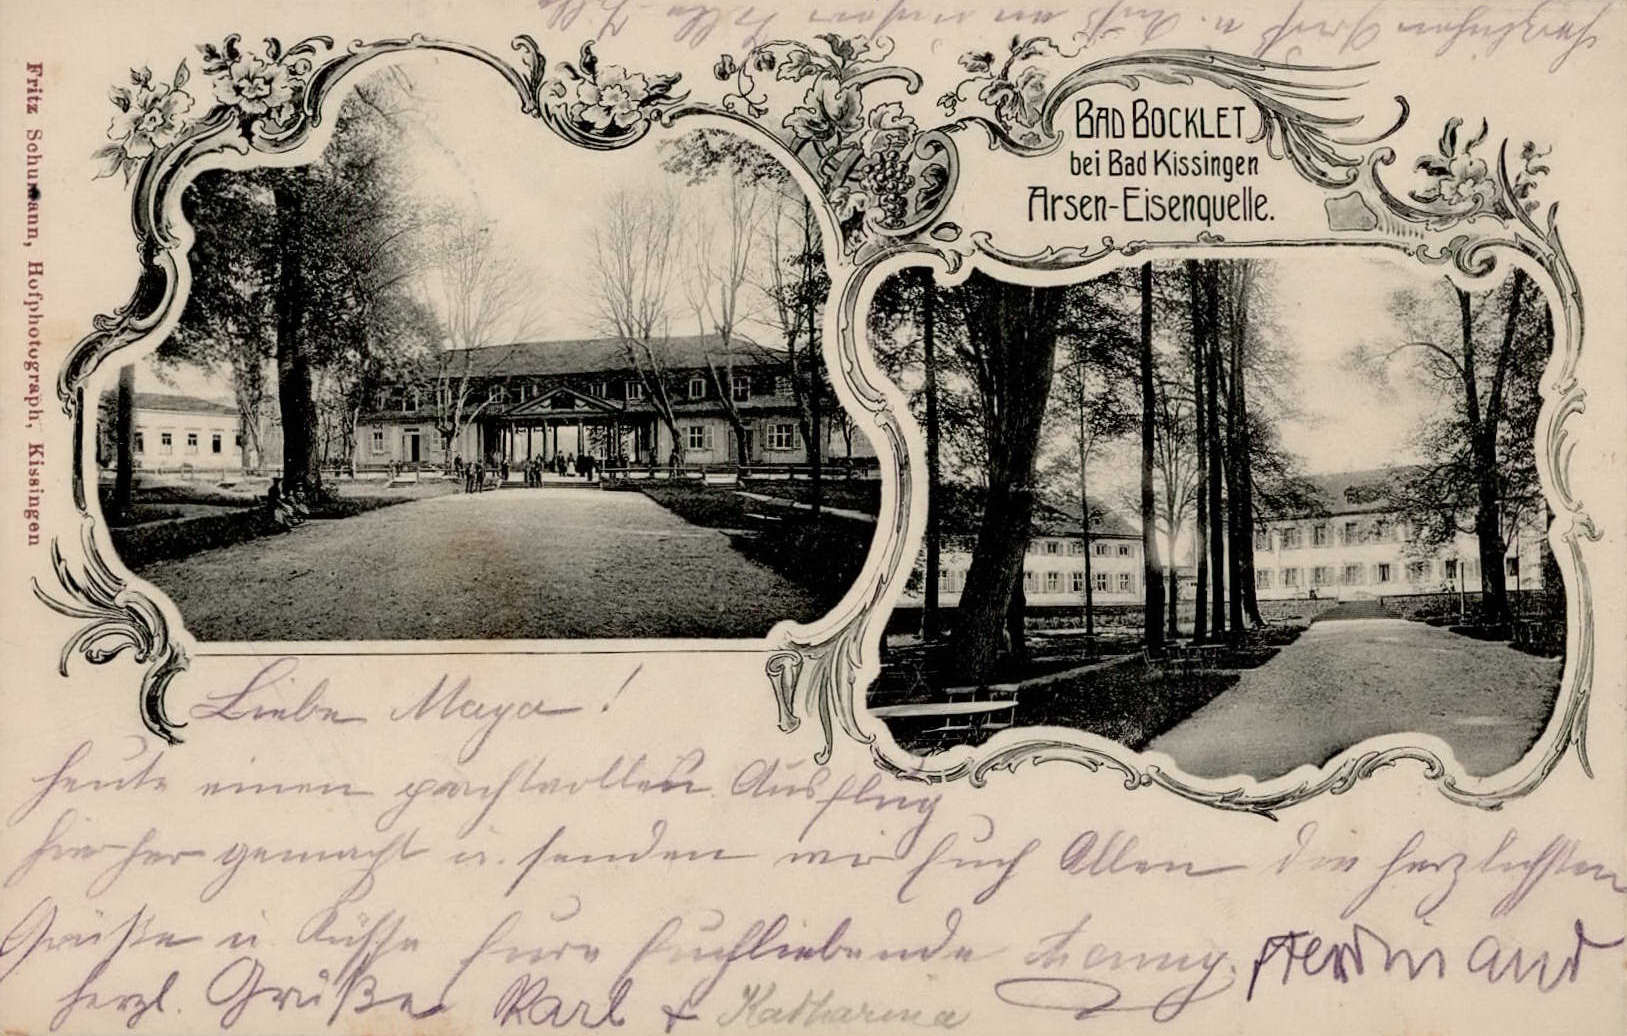 herzlichen Gruß u. Kuß an
BAD BOCKLET
bei Bad Kissingen
Arsen-Eisenquelle.
Fritz Schumann, Hofphotograph, Kissingen
Liebe Maya!
heute einen prachtvollen Ausflug
hierher gemacht u. senden wir Euch Allen die herzlichsten
Grüße u. Küsse Eure Euchliebende Fanny. Ferdinand
herzl. Grüße Karl + Katharina